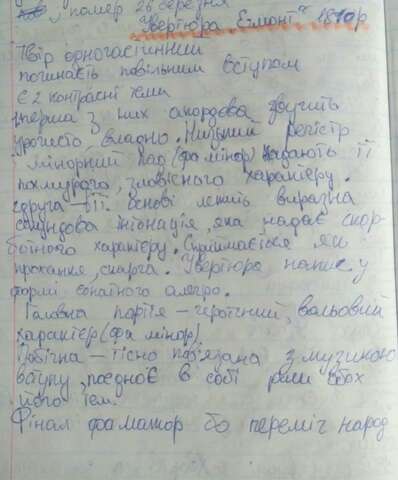 , помер 26 березня
Увертюра "Егмонт" 1810р
Твір одночастинний
починаєть повільним вступом
Є 2 контрасні теми
перша з них акордова звучить
урочисто, владно. Низький регістр
мінорний лад (фа мінор) надають її
похмурого, зловісного характеру.
друга – її основі лежить виразна
секундова інтонація, яка надає скор-
ботного характеру. Сприймається як
прохання, скарга. Увертюра напис. у
формі сонатного алегро.
Головна партія – героїчний, вольовий
характер (фа мінор)
Побічна – тісно пов'язана з музикою
вступу, поєднює в собі обох
його тем.
Фінал фа мажор бо переміг народ